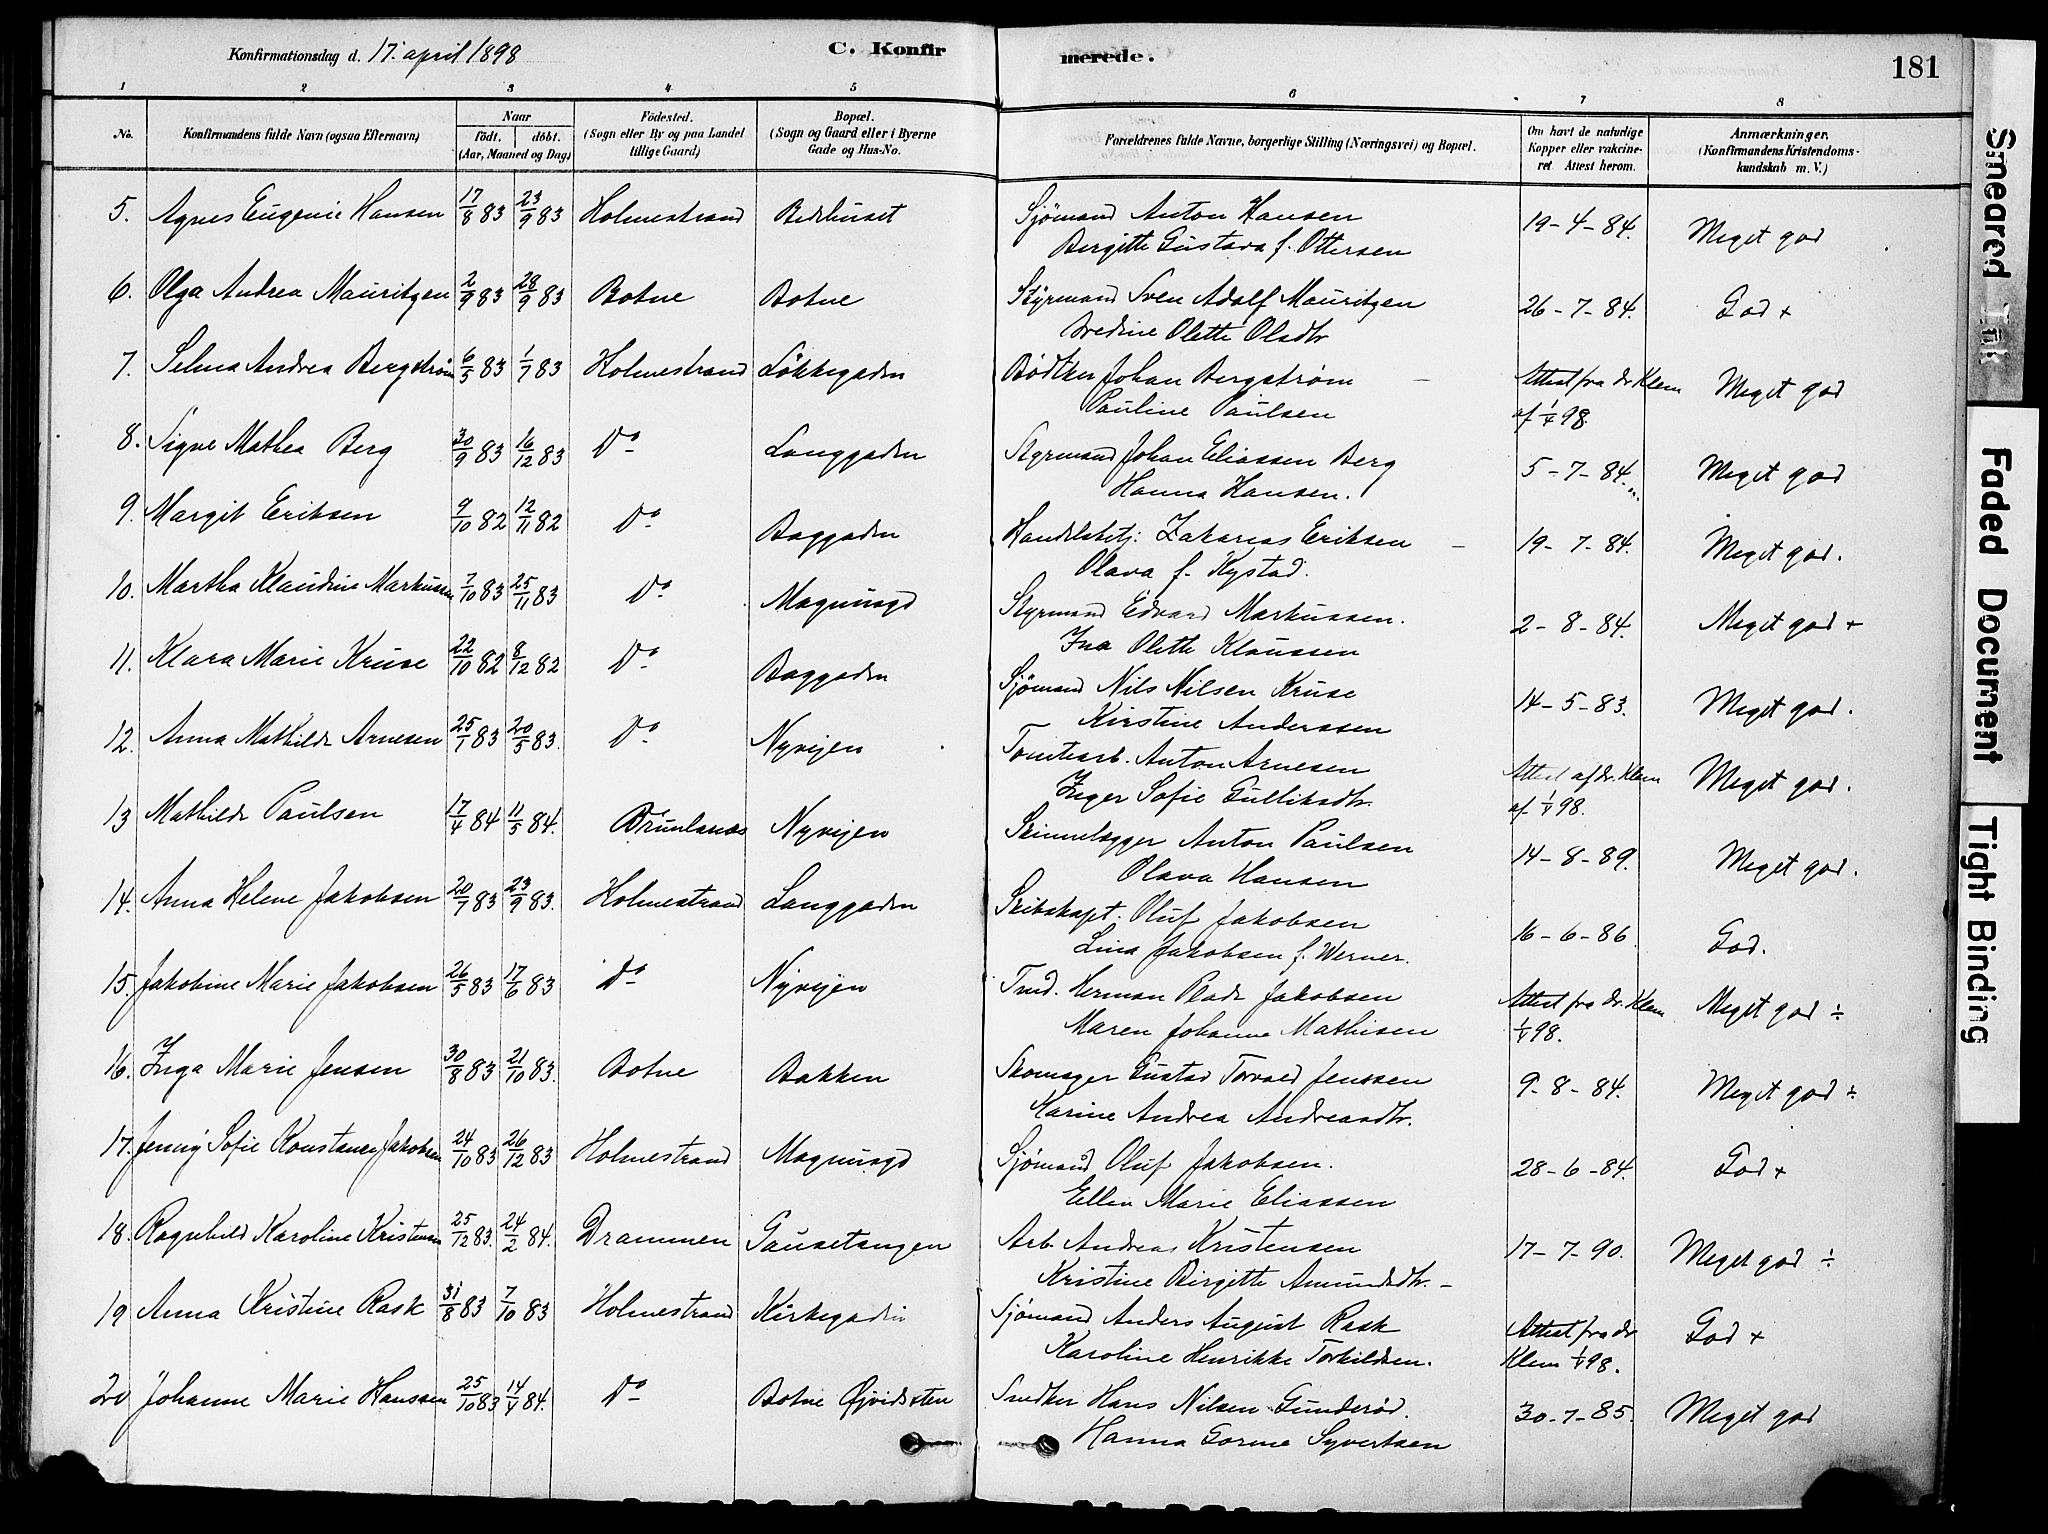 Konfirmationsdag d. 17. april 1898
C. Konfirmerede.
181
1 2 3 4 5 6 7 8
No. Konfirmandens fulde Navn (ogsaa Efternavn) Naar födt. döbt. (Aar, Maaned og Dag) Födested. (Sogn eller By og paa Landet tillige Gaard) Bopæl. (Sogn og Gaard eller i Byerne Gade og Hus-No. Forældrenes fulde Navne, borgerlige Stilling (Næringsvei) og Bopæl. Om havt de naturlige Kopper eller vakcineret Attest herom. Anmærkninger. (Konfirmandens Kristendomskundskab m. V.)
5. Agnes Eugenie Hansen 17/8 83 23/9 83 Holmestrand Bedehuset Sjömand Anton Hansen 19-4-84. Meget god
Bergitte Gustava f. Ottersen
6. Olga Andrea Mauritzen 2/9 83 28/9 83 Botne Botne Styrmand Sven Adolf Mauritzen 26-7-84. God +
Olette Olsdtr
7. Selma Andrea Bergström 6/5 83 1/7 83 Holmestrand Løkkegaden Bødker Johan Bergstrøm Attest fra dr. Klem Meget god
Pauline Paulsen af 1/4 98.
8. Signe Mathea Berg 30/9 83 16/12 83 Do Langgaden Styrmand Johan Eliassen Berg 5-7-84. Meget god
Hanna Hansen.
9. Margit Eriksen 9/10 82 12/11 82 Do Baggaden Handelsbetj: Zakarias Eriksen 19-7-84. Meget god.
Olava f. Kystad.
10. Martha Klaudine Markussen 7/10 83 25/11 83 Do Magnusgd Styrmand Edvard Markussen. 2-8-84. Meget god +
Ina Olette Klaussen
11. Klara Marie Kruse 22/10 82 8/12 82 Do Baggaden Sjömand Nils Nilsen Kruse 14-5-83. Meget god.
Kirstine Anderssen
12. Anna Mathilde Arnesen 25/1 83 20/5 83. Do Nyveien Tomtearb. Anton Arnesen Attest af dr. Klem Meget god.
Inger Sofie Gulliksdtr. af 1/4 98.
13 Mathilde Paulsen 17/4 84 11/5 84. Brunlanæs Nyveien Steinlægger Anton Paulsen 14-8-89. Meget god.
Olava Hansen
14. Anna Helene Jakobsen 20/7 83 23/9 83. Holmestrand Langgaden Skibskapt. Oluf Jakobsen 16-6-86. God.
Lina Jakobsen f. Werner.
15. Jakobine Marie Jakobsen 26/5 83 17/6 83 Do Nyveien Tmd. Herman Plade Jakobsen Attest fra dr. Klem Meget god ÷
Maren Johanne Mathisen 1/4 98.
16. Inga Marie Jensen 30/8 83 21/10 83. Botne Bakken Skomager Gustav Torvald Jenssen 9-8-84. Meget god ÷
Karine Andrea Andreasdtr.
17. Jenny Sofie Konstance Jakobsen 24/10 83 26/12 83 Holmestrand Magnusgd Sjömand Oluf Jakobsen. 28-6-84. God +
Ellen Marie Eliassen
18. Ragnhild Karoline Kristensen 25/12 83. 24/2 84. Drammen Gausetangen Arb. Andreas Kristensen 17-7-90. Meget god ÷
Kristine Birgitte Amundsdtr.
19 Anna Kristine Rask 31/8 83 7/10 83 Holmestrand Kirkegaden Sjömand Anders August Rask Attest fra dr God +
Karoline Henrikke Torkildsen. Klem 1/4 98.
20 Johanne Marie Hanssen 25/10 83 14/4 84. Do Botne Øjvidsten Snedker Hans Nilsen Gunderød. 30-7-85. Meget god
Hanna Gorine Syvertsen
Smeared Ink
Faded Document
Tight Binding